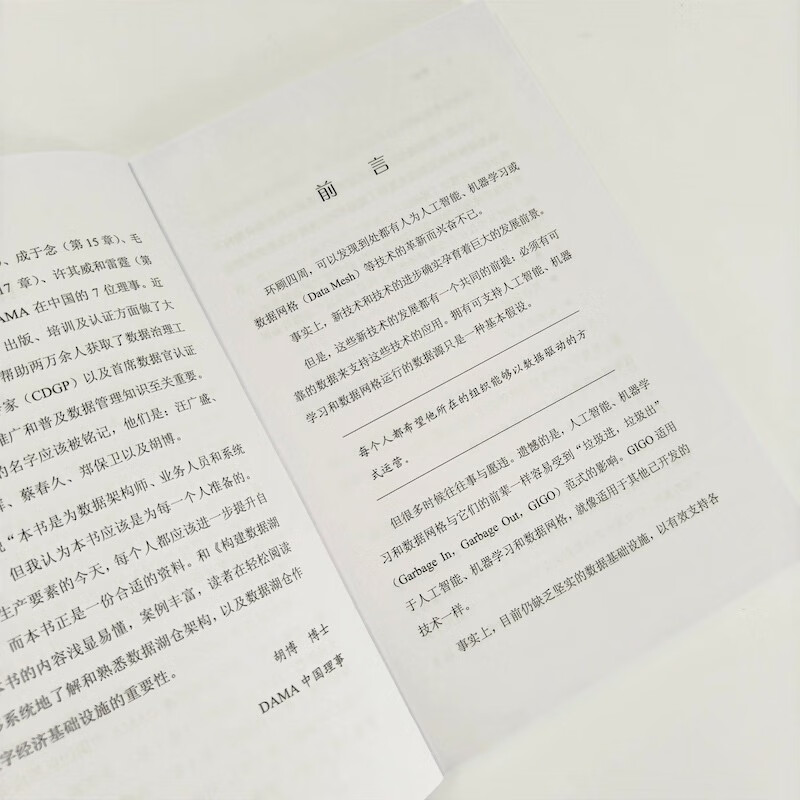 、成于念（第 15 章）、毛
17 章）、许其威和雷霆（第
AMA 在中国的 7 位理事。近
出版、培训及认证方面做了大
帮助两万余人获取了数据治理工
家（CDGP）以及首席数据官认证
推广和普及数据管理知识至关重要。
的名字应该被铭记，他们是：汪广盛、
、蔡春久、郑保卫以及胡博。
“本书是为数据架构师、业务人员和系统
但我认为本书应该是为每一个人准备的。
生产要素的今天，每个人都应该进一步提升自
而本书正是一份合适的资料。和《构建数据湖
书的内容浅显易懂，案例丰富，读者在轻松阅读
系统地了解和熟悉数据湖仓架构，以及数据湖仓作
字经济基础设施的重要性。
胡博 博士
DAMA 中国理事
前 言
环顾四周，可以发现到处都有人为人工智能、机器学习或
数据网格（Data Mesh）等技术的革新而兴奋不已。
事实上，新技术和技术的进步确实孕育着巨大的发展前景。
但是，这些新技术的发展都有一个共同的前提：必须有可
靠的数据来支持这些技术的应用。拥有可支持人工智能、机器
学习和数据网格运行的数据源只是一种基本假设。
每个人都希望他所在的组织能够以数据驱动的方
式运营。
但很多时候往往事与愿违。遗憾的是，人工智能、机器学
习和数据网格与它们的前辈一样容易受到“垃圾进，垃圾出”
（Garbage In，Garbage Out，GIGO）范式的影响。GIGO 适用
于人工智能、机器学习和数据网格，就像适用于其他已开发的
技术一样。
事实上，目前仍缺乏坚实的数据基础设施，以有效支持各